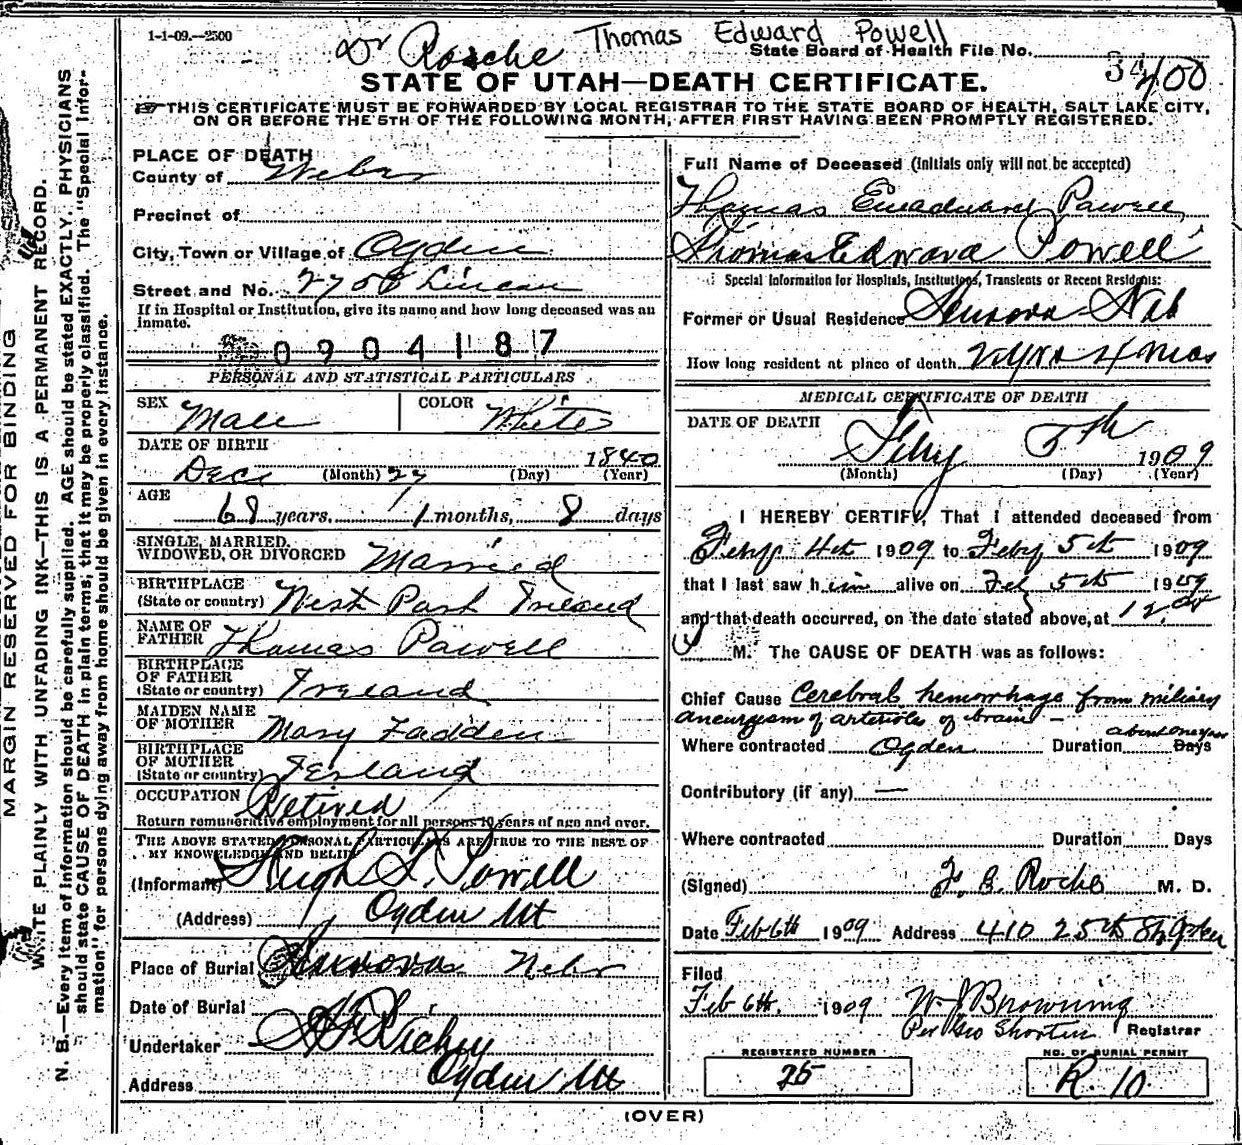 1-1-09.--2500
Dr Rosche
Thomas Edward Powell
State Board of Health File No.
400
STATE OF UTAH—DEATH CERTIFICATE.
THIS CERTIFICATE MUST BE FORWARDED BY LOCAL REGISTRAR TO THE STATE BOARD OF HEALTH, SALT LAKE CITY,
ON OR BEFORE THE 5TH OF THE FOLLOWING MONTH, AFTER FIRST HAVING BEEN PROMPTLY REGISTERED.
MARGIN RESERVED FOR BINDING
WRITE PLAINLY WITH UNFADING INK—THIS IS A PERMANENT RECORD.
N. B.—Every item of information should be carefully supplied. AGE should be stated EXACTLY. PHYSICIANS
should state CAUSE OF DEATH in plain terms, that it may be properly classified. The "Special Infor-
mation" for persons dying away from home should be given in every instance.
PLACE OF DEATH
County of Weber
Precinct of
City, Town or Village of Ogden
Street and No. 2708 Lincoln
If in Hospital or Institution, give its name and how long deceased was an
inmate.
0904187
PERSONAL AND STATISTICAL PARTICULARS
SEX Male COLOR White
DATE OF BIRTH
Dec 27 1840
(Month) (Day) (Year)
AGE
68 years, 1 months, 8 days
SINGLE, MARRIED,
WIDOWED, OR DIVORCED Married
BIRTHPLACE
(State or country) West Port Ireland
NAME OF
FATHER Thomas Powell
BIRTHPLACE
OF FATHER
(State or country) Ireland
MAIDEN NAME
OF MOTHER Mary Fadden
BIRTHPLACE
OF MOTHER
(State or country) Ierland
OCCUPATION Retired
Return remunerative employment for all persons 10 years of age and over.
THE ABOVE STATED PERSONAL PARTICULARS ARE TRUE TO THE BEST OF
MY KNOWLEDGE AND BELIEF
(Informant) Hugh L. Powell
(Address) Ogden Ut
Place of Burial Nebr
Date of Burial
Undertaker
Address Ogden Ut
Full Name of Deceased (Initials only will not be accepted)
Thomas Powell
Thomas Edward Powell
Special Information for Hospitals, Institutions, Transients or Recent Residents:
Former or Usual Residence Neb
How long resident at place of death 2 yrs 4 mos
MEDICAL CERTIFICATE OF DEATH
DATE OF DEATH
Feby 5th 1909
(Month) (Day) (Year)
I HEREBY CERTIFY, That I attended deceased from
Feby 4th 1909 to Feby 5th 1909
that I last saw him alive on Feb 5th 1909
and that death occurred, on the date stated above, at 12.00
M. The CAUSE OF DEATH was as follows:
Chief Cause Cerebral hemorrhage from miliary
aneurysm of arterioles of brain —
Where contracted Ogden Duration about one year Days
Contributory (if any) —
Where contracted Duration Days
(Signed) F. B. Roche M. D.
Date Feb 6th 1909 Address 410 25th St
Filed
Feb 6th. 1909 W J Browning
Per Geo Shorten Registrar
REGISTERED NUMBER
75
NO. OF BURIAL PERMIT
R. 10
(OVER)